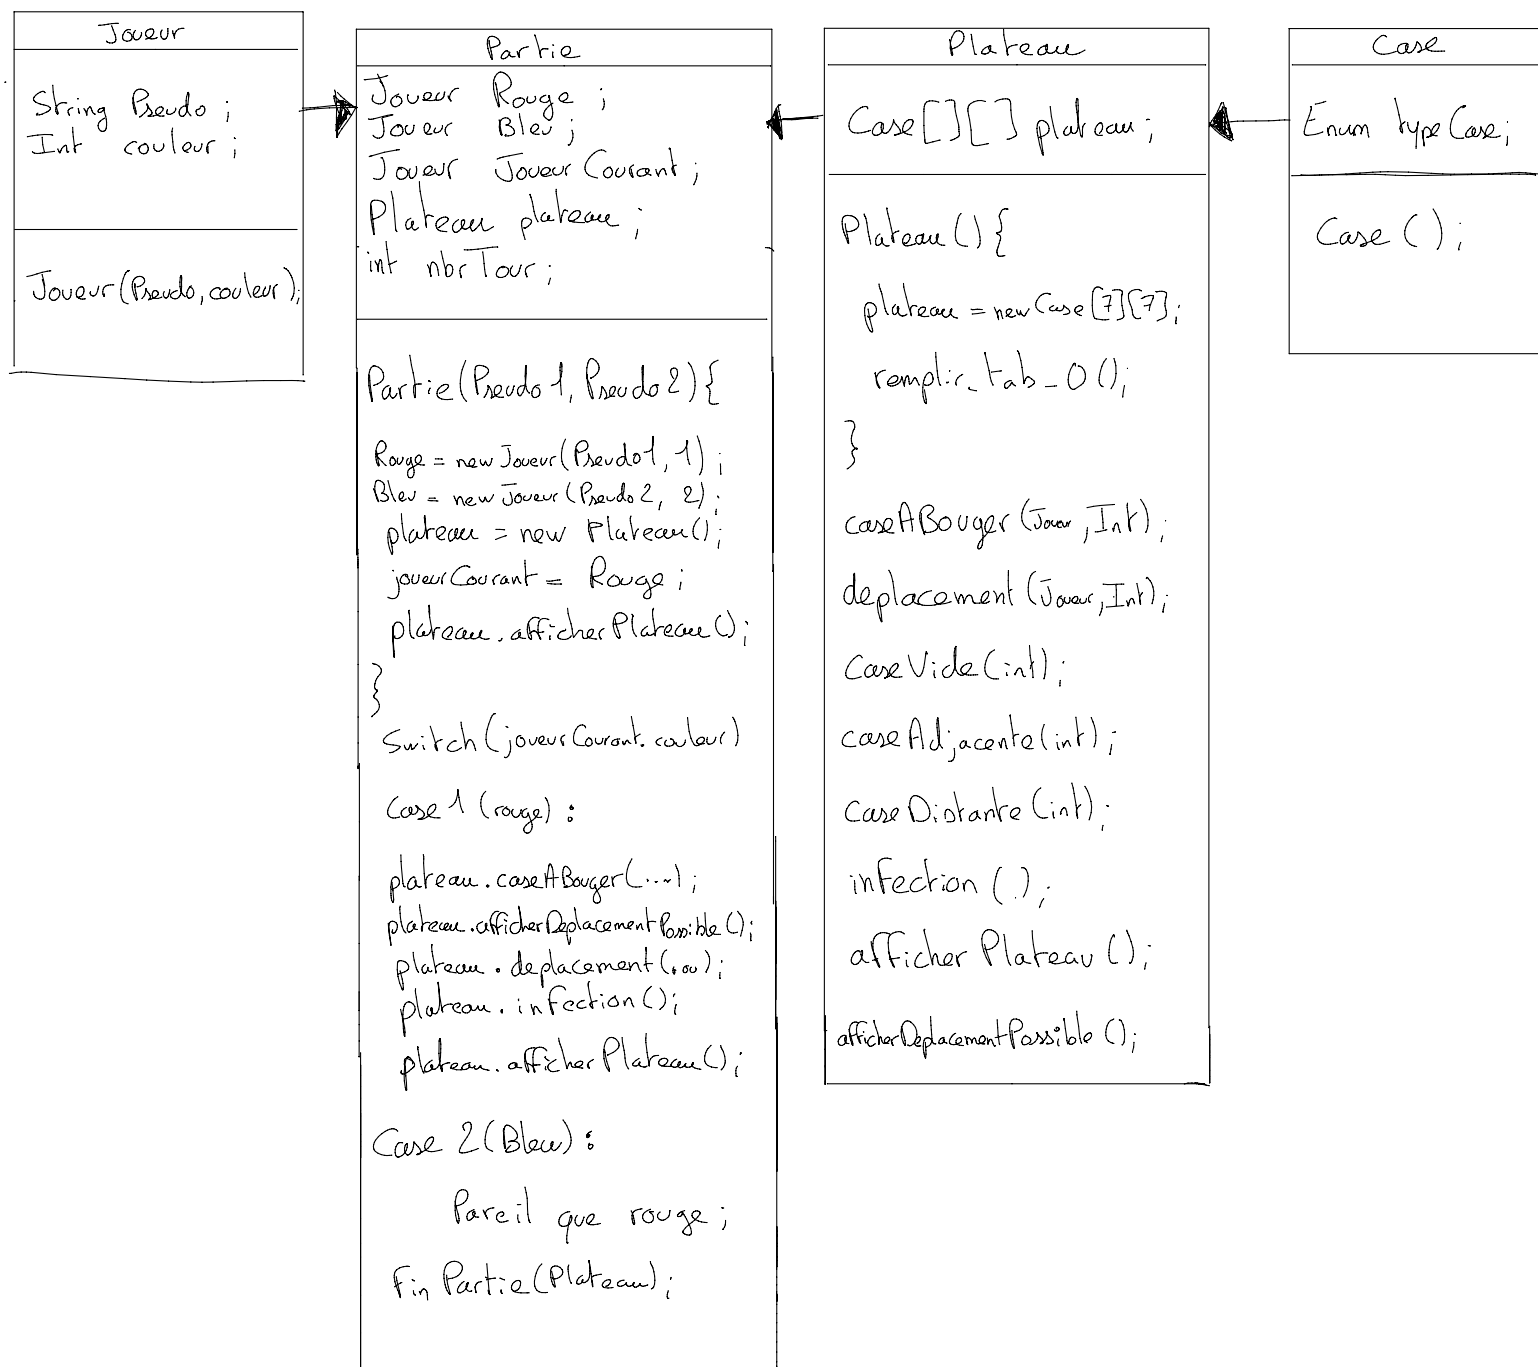 Joueur
String Pseudo ;
Int couleur ;
Joueur (Pseudo, couleur);
Partie
Joueur Rouge ;
Joueur Bleu ;
Joueur Joueur Courant ;
Plateau plateau ;
int nbrTour ;
Partie (Pseudo 1, Pseudo 2) {
Rouge = new Joueur (Pseudo1, 1) ;
Bleu = new Joueur (Pseudo 2, 2) ;
plateau = new Plateau();
joueurCourant = Rouge ;
plateau.afficherPlateau();
}
Switch (joueurCourant.couleur)
Case 1 (rouge) :
plateau.caseABouger(....) ;
plateau.afficherDeplacementPossible();
plateau.deplacement(...);
plateau.infection();
plateau.afficherPlateau();
Case 2 (Bleu) :
Pareil que rouge ;
Fin Partie (Plateau) ;
Plateau
Case [ ] [ ] plateau ;
Plateau () {
plateau = new Case [7][7] ;
remplir_tab_0 ();
}
caseABouger (Joueur, Int) ;
deplacement (Joueur, Int) ;
Case Vide (int) ;
case Adjacente (int) ;
Case Distante (int) ;
infection (.) ;
afficher Plateau () ;
afficherDeplacementPossible () ;
Case
Enum type Case ;
Case () ;